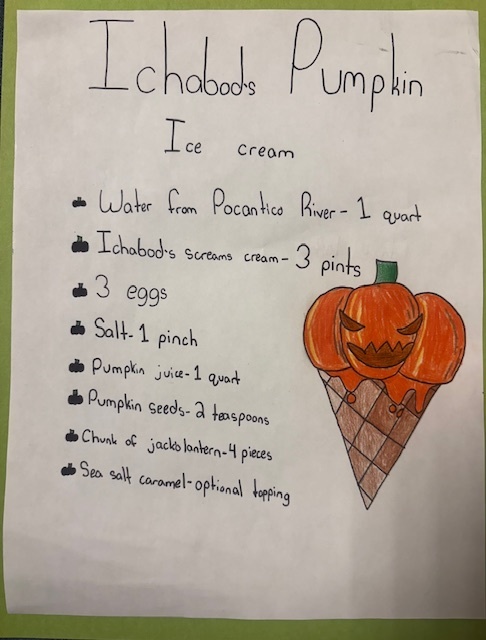 Ichabod's Pumpkin
Ice cream
Water from Pocantico River - 1 quart
Ichabod's screams cream - 3 pints
3 eggs
Salt - 1 pinch
Pumpkin juice - 1 quart
Pumpkin seeds - 2 teaspoons
Chunk of jackolantern - 4 pieces
Sea salt caramel - optional topping